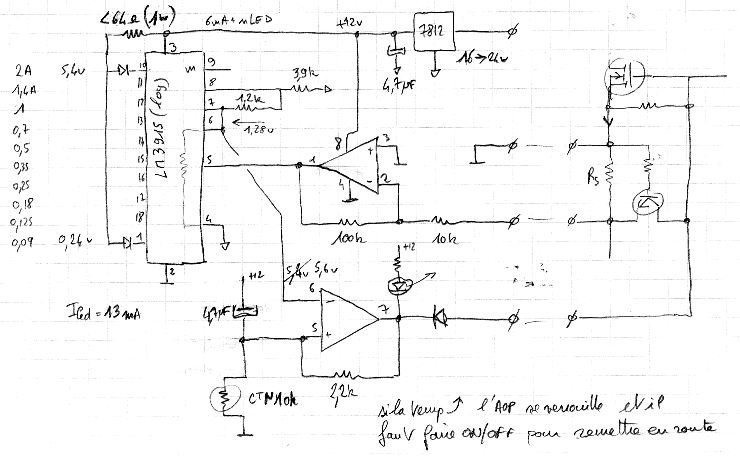 <64Ω (1W)
6mA + nLED
+12v
7812
16→24v
4,7µF
2A
1,4A
1
0,7
0,5
0,35
0,25
0,18
0,125
0,09
5,4v
0,24v
3
10
11
12
13
14
15
16
18
1
2
LM3915 (log)
9
8
7
6
5
4
3,9k
1,2k
1,28v
8
1
4
3
2
+
-
100k
10k
Rs
+12
+12
5,6v
4,7µF
6
5
7
-
+
2,2k
CTN 10k
ILed = 13mA
si la temp ↑ l'AOP se verrouille et il
faut faire ON/OFF pour remettre en route